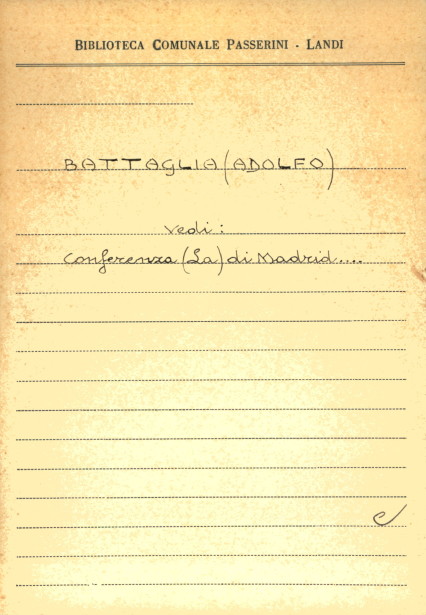 BIBLIOTECA COMUNALE PASSERINI - LANDI
BATTAGLIA (ADOLFO)
vedi:
Conferenza (La) di Madrid....